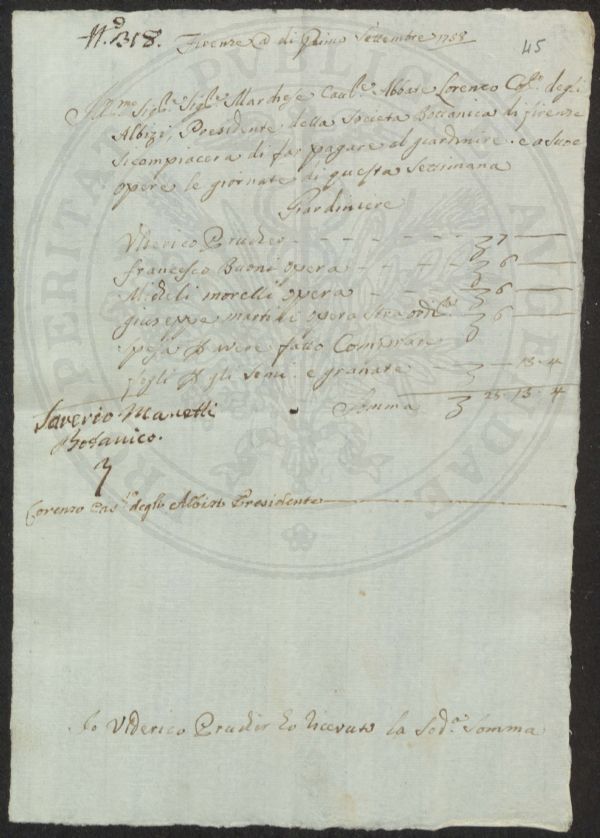 N.° 318. Firenze a di Primo Settembre 1758
45
Ill.mo Sig.re Sig.re Marchese Caul.re Abbate Lorenzo Cas.ne degli
Albizi, Presidente della Società Bottanica di firenze
Si compiacera di far pagare al giardinire e a sue
opere le giornate di questa Settimana
Giardiniere
Vlderico Prucker - - - - - 7 —
francesco Buoni opera - - - - 6 —
Micheli morelli opera - - 6 —
giuseppe martini opera Straord.ria 6 —
Spesa P avere fatto Comprare
fogli P gli Semi e granate - — 13.4
Somma 25.13.4
Saverio Manetti
Botanico.
Lorenzo Cas.ne degli Albizi Presidente
Io Vlderico Prucker ho ricevuto la Sod.a Somma
PROSPERITATI PVBLICAE AVGENDAE